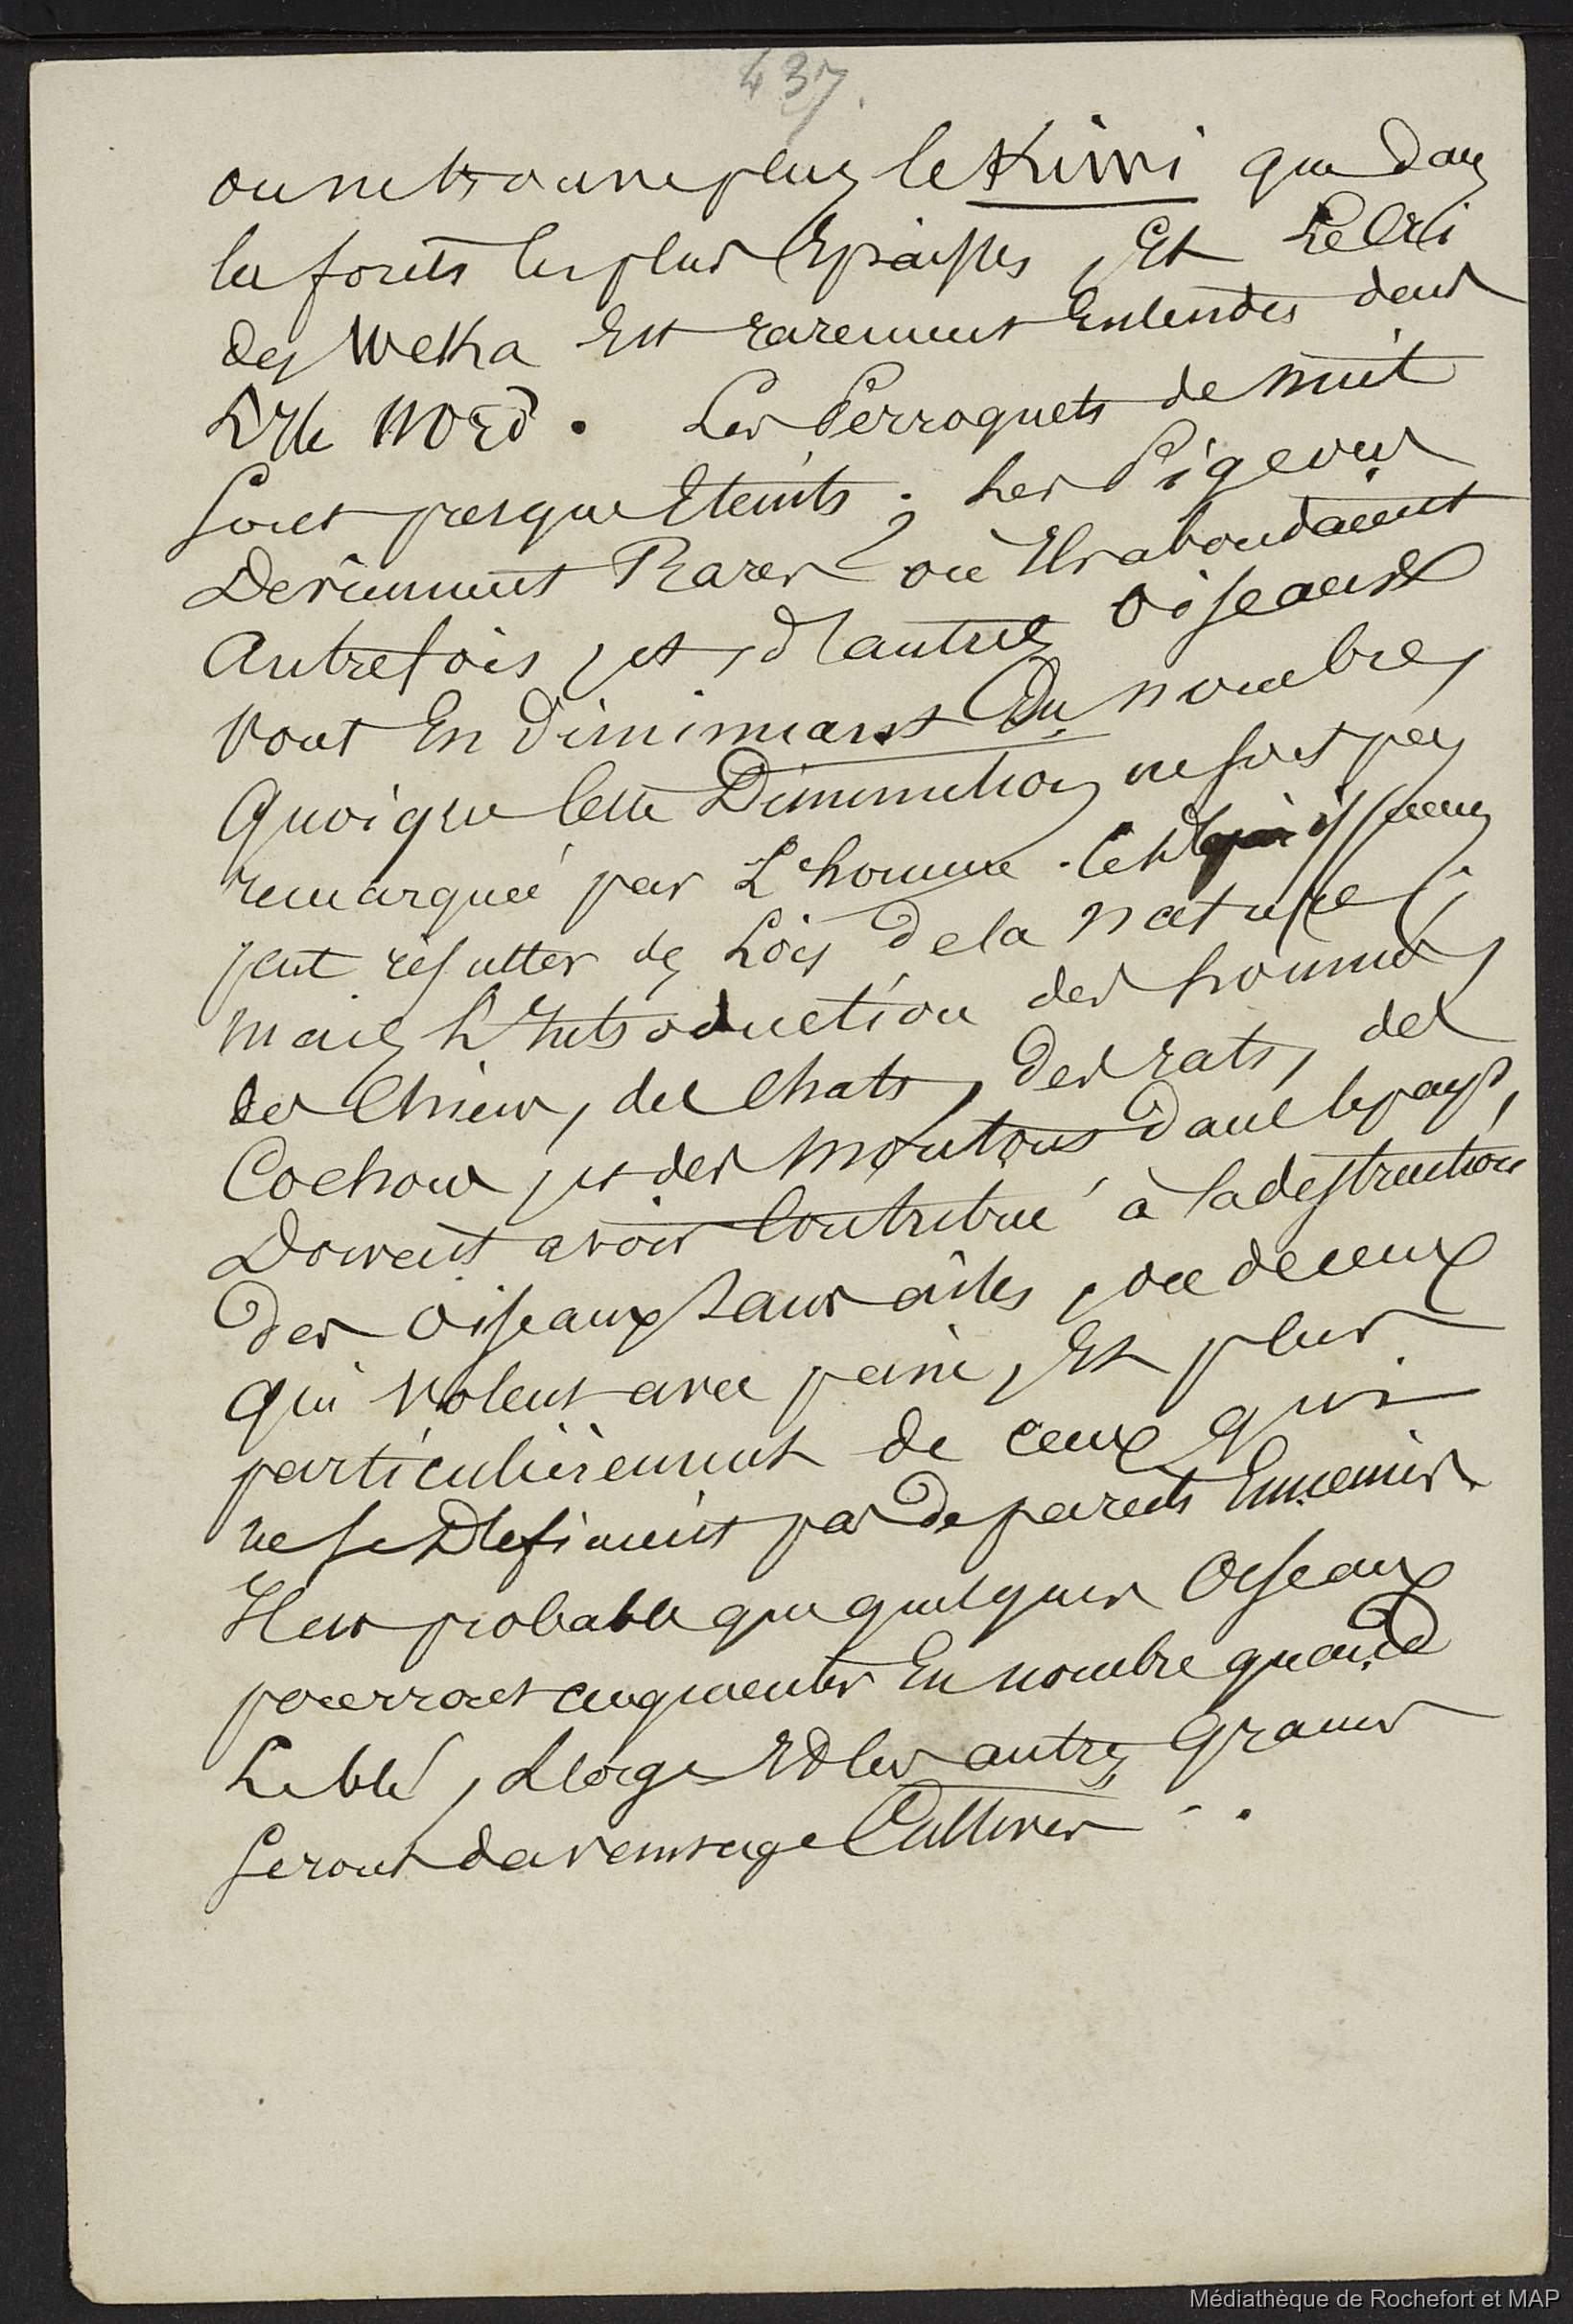 437.
on ne trouve plus le Kiwi que dans
les forêts les plus Epaisses, Et Le Cri
des Weka Est rarement Entendus dans
L'Ile Nord. Les Perroquets de nuit
Sont presque Eteints; Les Pigeons
Deviennent Rares où Ils abondaient
Autrefois, et, d'autres Oiseaux
vont En Diminuant Du nombre,
Quoique Cette Diminution ne soit pas
remarquée par L'homme.
peut résulter des Lois de la nature;
mais L'Introduction des hommes,
des Chiens, des Chats, des rats, des
Cochons, et des moutons dans le pays,
Doivent avoir Contribué à la destruction
Des Oiseaux Sans ailes, ou de ceux
Qui Volent avec peine, Et plus
particulièrement de ceux qui
ne se Defiaient pas de pareils Ennemis.
Il est probable que quelques Oiseaux
pourront augmenter En nombre quand
Le blé, L'orge Et les autres Grains
Seront davantage Cultivés..
Médiathèque de Rochefort et MAP